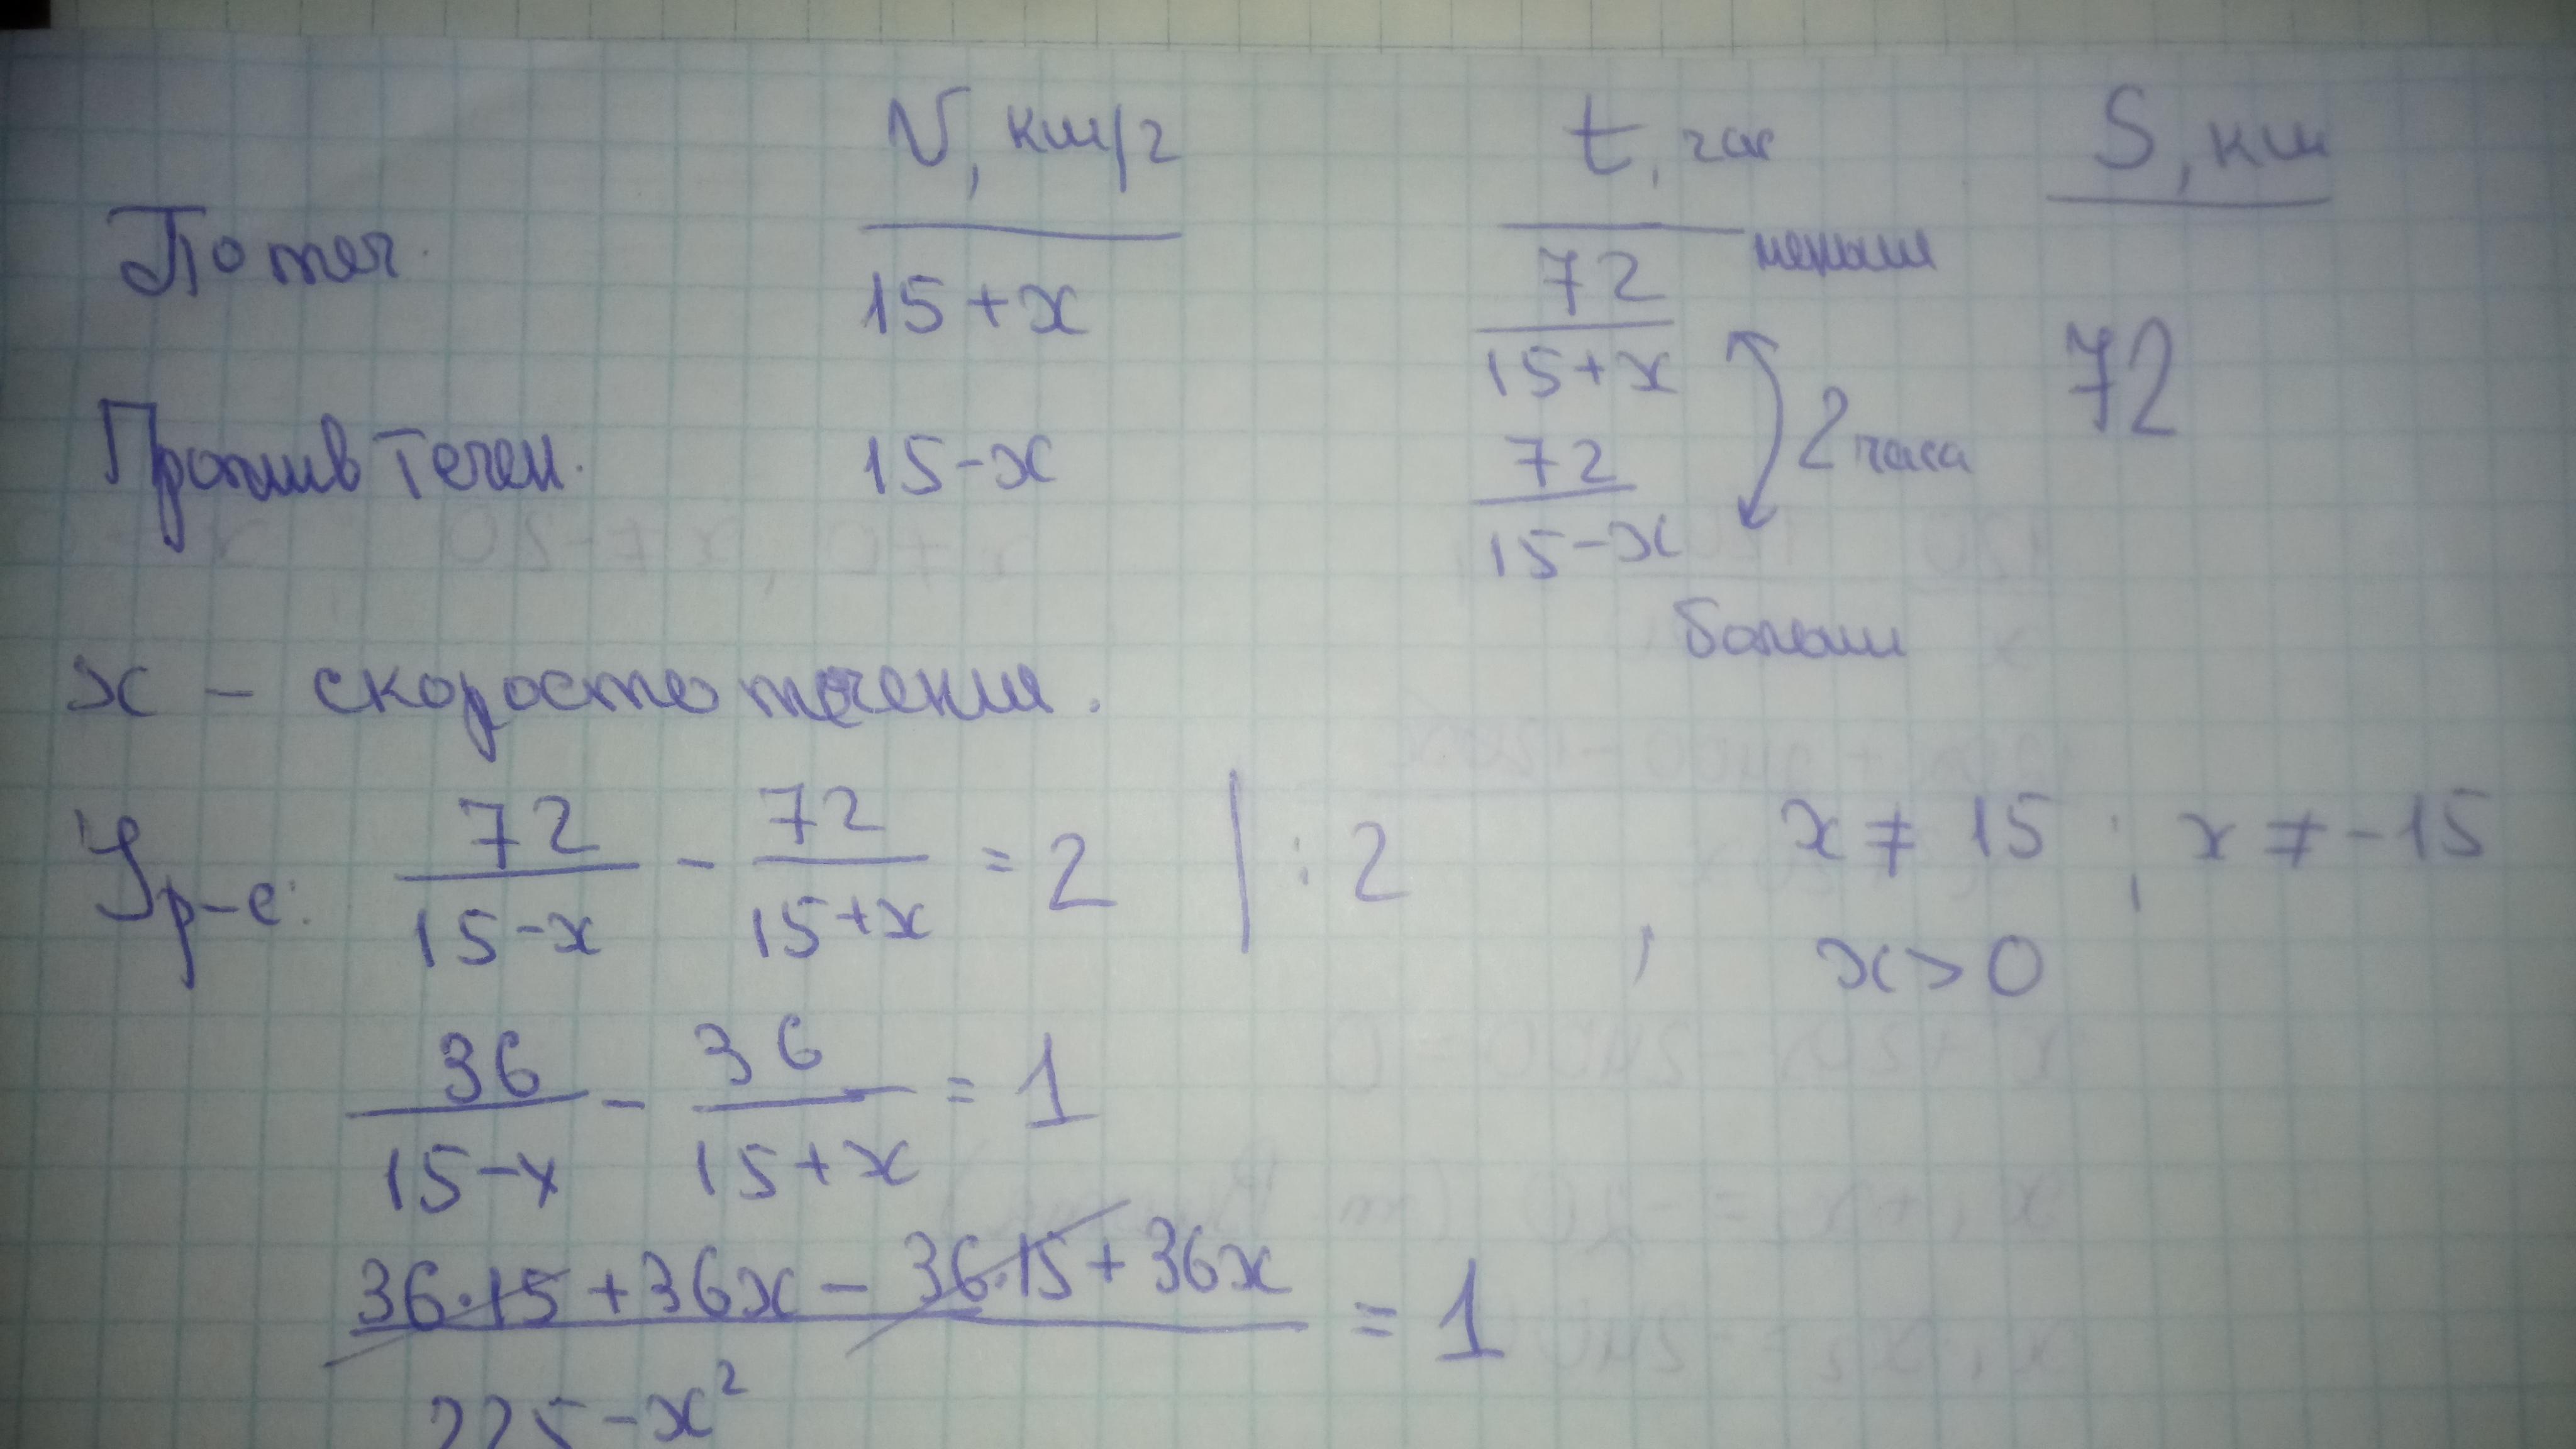 V, км/ч t, час S, км
По теч. 15+x 72/15+x меньше
72
Против течен. 15-x 72/15-x 2 часа
больше
x - скорость течения.
Ур-е: 72/15-x - 72/15+x = 2 | :2 , x ≠ 15 ; x ≠ -15
x > 0
36/15-x - 36/15+x = 1
36·15 + 36x - 36·15 + 36x / 225 - x² = 1